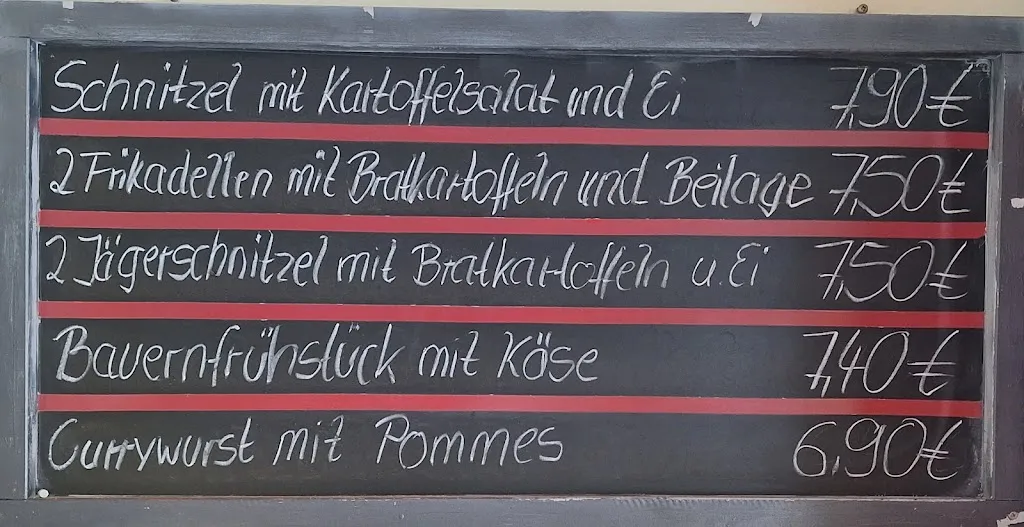 Schnitzel mit Kartoffelsalat und Ei 7,90 €
2 Frikadellen mit Bratkartoffeln und Beilage 7,50 €
2 Jägerschnitzel mit Bratkartoffeln u. Ei 7,50 €
Bauernfrühstück mit Käse 7,40 €
Currywurst mit Pommes 6,90 €